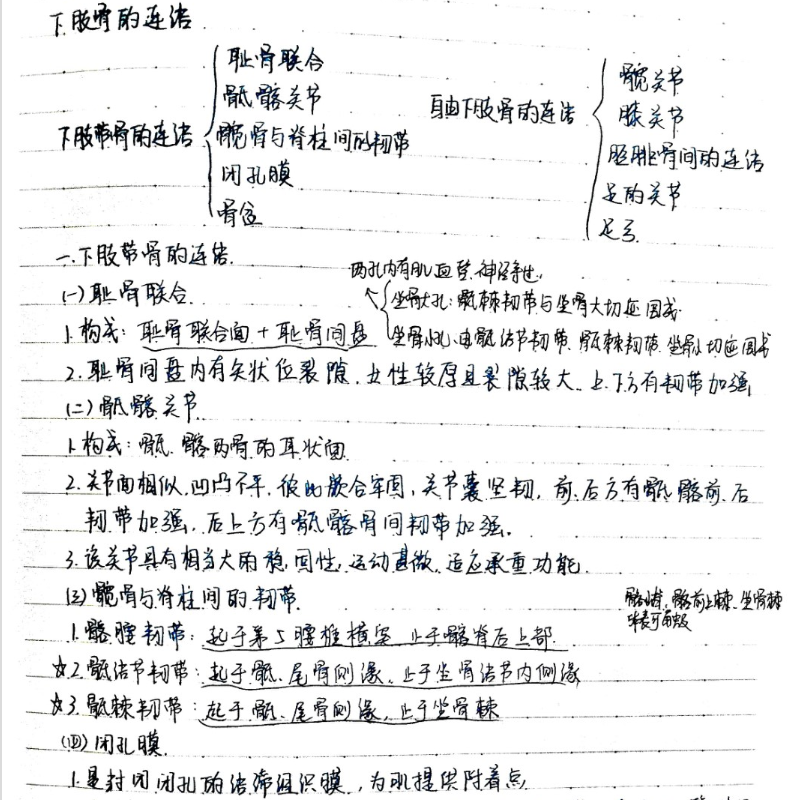 下肢骨的连结
下肢带骨的连结
耻骨联合
骶髂关节
髋骨与脊柱间的韧带
闭孔膜
骨盆
自由下肢骨的连结
髋关节
膝关节
胫腓骨间的连结
足的关节
足弓
一.下肢带骨的连结.
(一)耻骨联合.
两孔内有肌.血管.神经穿过.
坐骨大孔:骶棘韧带与坐骨大切迹围成
坐骨小孔:由骶结节韧带.骶棘韧带.坐骨小切迹围成
1.构成:耻骨联合面+耻骨间盘
2.耻骨间盘内有矢状位裂隙.女性较厚且裂隙较大.上.下方有韧带加强
(二)骶髂关节.
1.构成:骶.髂两骨的耳状面.
2.关节面相似.凹凸不平.彼此嵌合牢固,关节囊坚韧,前.后方有骶髂前.后
韧带加强.后上方有骶髂骨间韧带加强.
3.该关节具有相当大的稳固性,运动甚微.适应承重功能.
(三)髋骨与脊柱间的韧带.
髂嵴,髂前上棘.坐骨棘
体表可触及
1.髂腰韧带:起于第5腰椎横突.止于髂嵴后上部.
☆2.骶结节韧带:起于骶.尾骨侧缘.止于坐骨结节内侧缘
☆3.骶棘韧带:起于骶.尾骨侧缘,止于坐骨棘
(四)闭孔膜.
1.是封闭闭孔的结缔组织膜,为肌提供附着点